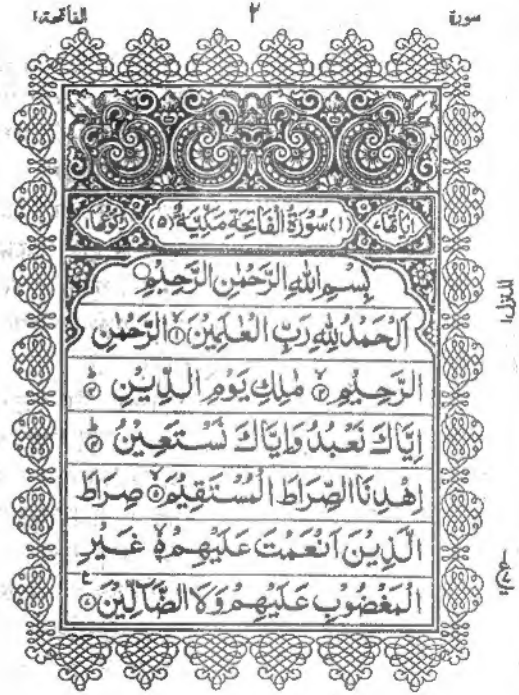 سورة ٢ الفاتحة ١
اٰیاتها ٧ (١) سُوْرَةُ الْفَاتِحَةِ مَكِّيَّةٌ (٥) رکوعها ١
بِسْمِ اللّٰهِ الرَّحْمٰنِ الرَّحِيْمِ
اَلْحَمْدُ لِلّٰهِ رَبِّ الْعٰلَمِيْنَ ۙ﴿١﴾ الرَّحْمٰنِ
الرَّحِيْمِ ۙ﴿٢﴾ مٰلِكِ يَوْمِ الدِّيْنِ ؕ﴿٣﴾
اِيَّاكَ نَعْبُدُ وَاِيَّاكَ نَسْتَعِيْنُ ؕ﴿٤﴾
اِهْدِنَا الصِّرَاطَ الْمُسْتَقِيْمَ ۙ﴿٥﴾ صِرَاطَ
الَّذِيْنَ اَنْعَمْتَ عَلَيْهِمْ ۙ۬ غَيْرِ
الْمَغْضُوْبِ عَلَيْهِمْ وَلَا الضَّآلِّيْنَ
المنزل ١